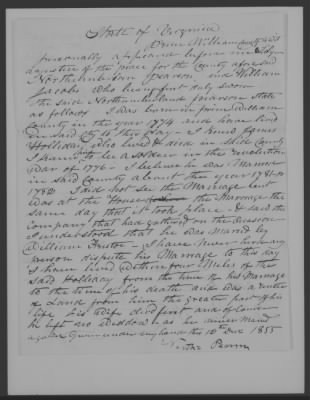 State of Virginia
Prince William County to wit
personally appeared before me
a justice of the peace for the County aforesaid
Northumberland Pearson and William
Jacobs who being first duly sworn
the said Northumberland Pearson State
as follows I was born in prince William
County in the year 1774 and have lived
in said Cty to this Day - I knew James
Holliday who lived & died in said county
I heard he was a soldier in the revolution
war of 1776 - I believe he was Married
in said County about the year 1781 or
1782 I did not see the Marriage but
was at the House the Marriage the
same day that it took place & said the
Company that had gathered on the occasion
I understood that he was Maried by
William I have never heard any
person dispute his Marriage to this day
I have lived within four Miles of the
said Holliday from the time of his Marriage
to the time of his death and was a renter
of Land from him the greater part of his
life his wife died first and
he left no Widdow as he never Maried
again Given under my hand this 10th Dec 1855